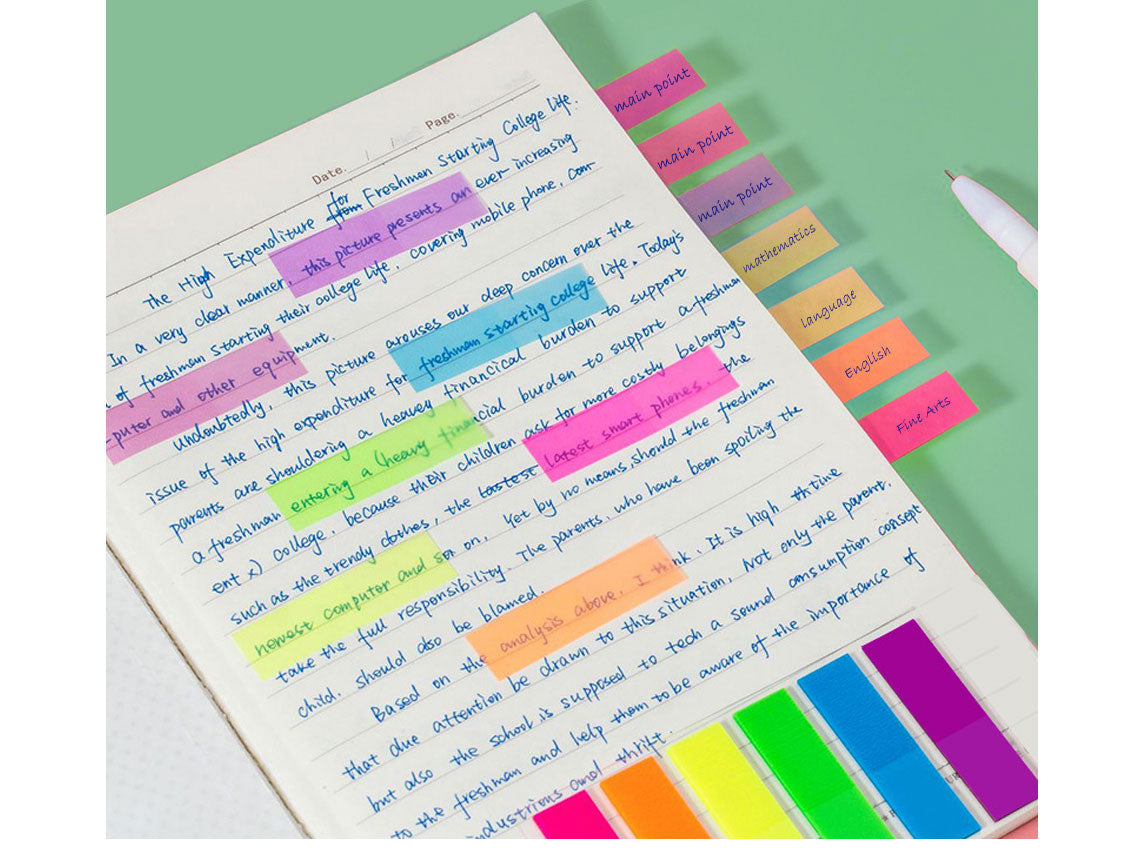 Date. Page.
The High Expenditure from for Freshmen Starting College life.
In a very clear manner, this picture presents an ever increasing
of freshman starting their college life, covering mobile phone, com-
puter and other equipment.
Undoubtedly, this picture arouses our deep concern over the
issue of the high expenditure for freshman starting college life. Today's
parents are shouldering a heavy financical burden to support
a freshman entering a (heavy financial burden to support a freshman
ent x) college, because their children ask for more costly belongings
such as the trendy clothes, the lastest latest smart phones, the
newest computor and so on. Yet by no means should the freshman
take the full responsibility. The parents, who have been spoiling the
child, should also be blamed.
Based on the analysis above, I think, It is high thtime
that due attention be drawn to this situation, Not only the parent.
but also the school is supposed to tech a sound consumption consept
to the freshman and help them to be aware of the importance of
industrious and thrift.
main point
main point
main point
mathematics
language
English
Fine Arts